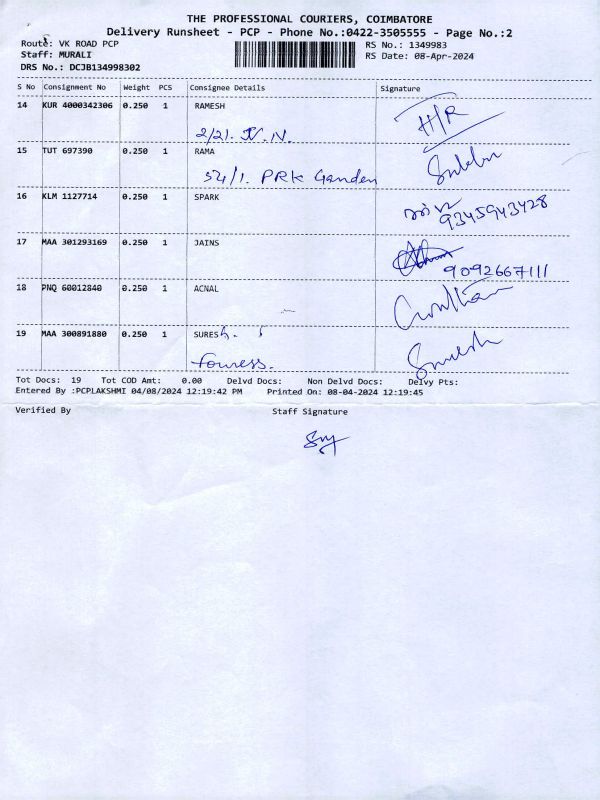 THE PROFESSIONAL COURIERS, COIMBATORE
Delivery Runsheet - PCP - Phone No.:0422-3505555 - Page No.:2
Route: VK ROAD PCP RS No.: 1349983
Staff: MURALI RS Date: 08-Apr-2024
DRS No.: DCJB134998302
S No Consignment No Weight PCS Consignee Details Signature
14 KUR 4000342306 0.250 1 RAMESH H/R
2/21. N.N.
15 TUT 697390 0.250 1 RAMA
54/1. PRK Garden
16 KLM 1127714 0.250 1 SPARK
9345943428
17 MAA 301293169 0.250 1 JAINS
9092667111
18 PNQ 60012840 0.250 1 ACNAL
19 MAA 300891880 0.250 1 SURESh. Suresh
Tot Docs: 19 Tot COD Amt: 0.00 Delvd Docs: Non Delvd Docs: Delvy Pts:
Entered By :PCPLAKSHMI 04/08/2024 12:19:42 PM Printed On: 08-04-2024 12:19:45
Verified By Staff Signature